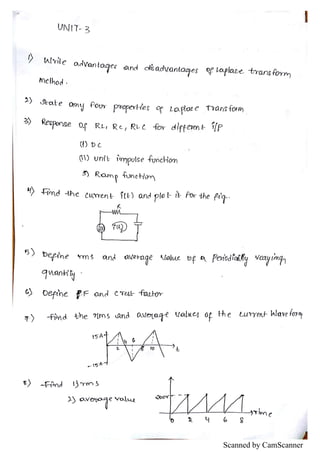 UNIT-3
1) Write advantages and disadvantages of Laplace transform
method.
2) State any four properties of Laplace Transform
3) Response of RL, RC, RLC for different i/p
(i) DC
(ii) unit impulse function
3) Ramp function
4) Find the current i(t) and plot it for the fig.
R
i(t)
5) Define rms and average value of a Periodically varying
quantity.
6) Define FF and crest factor
7.) -Find the rms and average values of the current waveform
15A
2
10
t
-15A
8) -Find 1) rms
2) average value
200V
0 2 4 6 8
time
Scanned by CamScanner